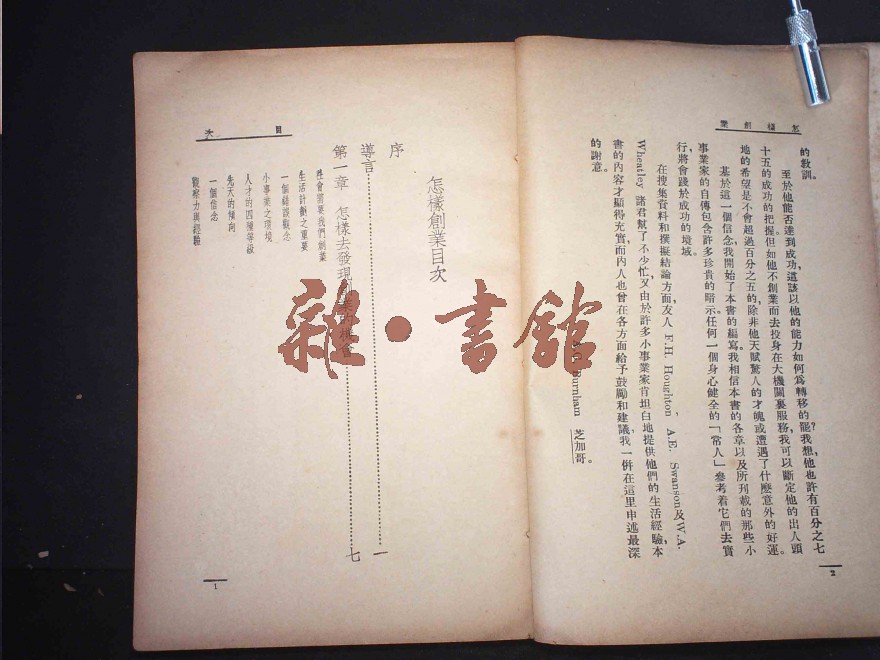 怎樣創業
的敎訓。
至於他能否達到成功,這該以他的能力如何爲轉移的罷?我想,他也許有百分之七
十五的成功的把握。但如他不創業而去投身在大機關裏服務,我可以斷定他的出人頭
地的希望是不會超過百分之五的,除非他天賦驚人的才魄或遭遇了什麼意外的好運。
基於這一個信念,我開始了本書的編寫。我相信本書的各章以及所刊載的那些小
事業家的自傳包含許多珍貴的暗示。任何一個身心健全的「常人」參考着它們去實
行,將會踐於成功的境域。
在搜集資料和撰擬結論方面,友人 F.H. Houghton, A.E. Swanson及W.A.
Wheatley 諸君幫了不少忙。又由於許多小事業家肯坦白地提供他們的生活經驗,本
書的內容才顯得充實。而內人也曾在各方面給予鼓勵和建議,我一併在這里申述最深
的謝意。
Burnham 芝加哥。
2
目次
怎樣創業目次
序
導言……一
第一章 怎樣去發現……七
社會需要我們創業
生活計劃之重要
一個錯誤觀念
小事業之環境
人才的四種等級
先天的傾向
一個信念
觀察力與經驗
1
雜·書館